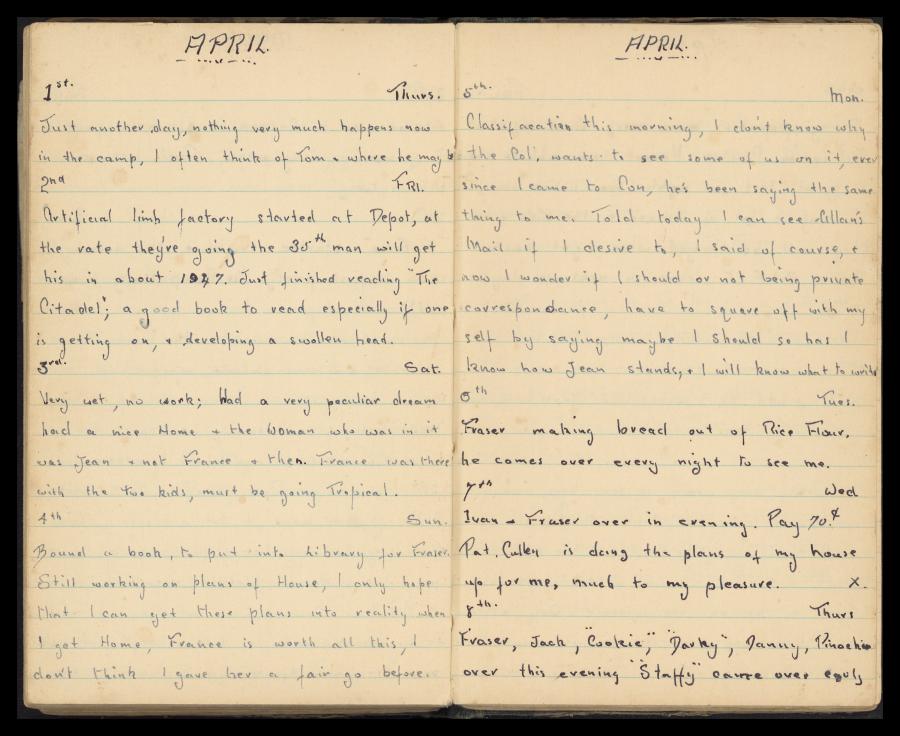 APRIL.
1st. Thurs.
Just another day, nothing very much happens now
in the camp, I often think of Tom & where he may b
2nd FRI.
Artificial limb factory started at Depot, at
the rate they're going the 35th man will get
his in about 1947. Just finished reading "The
Citadel"; a good book to read especially if one
is getting on, & developing a swollen head.
3rd. Sat.
Very wet, no work; Had a very peculiar dream
had a nice Home & the Woman who was in it
was Jean & not France & then France was there
with the two kids, must be going Tropical.
4th Sun.
Bound a book, to put into Library for Fraser.
Still working on plans of House, I only hope
that I can get these plans into reality when
I get Home, France is worth all this, I
don't think I gave her a fair go before.
APRIL.
5th. Mon.
Classifacation this morning, I don't know why
the Col. wants to see some of us on it, ever
since I came to Con, he's been saying the same
thing to me. Told today I can see Allan's
Mail if I desire to, I said of course, &
now I wonder if I should or not being private
correspondance, have to square off with my
self by saying maybe I should so has I
know how Jean stands, & I will know what to write
6th Tues.
Fraser making bread out of Rice Flour,
he comes over every night to see me.
7th Wed
Ivan & Fraser over in evening. Pay 70.¢
Pat. Cullen is doing the plans of my house
up for me, much to my pleasure. X.
8th. Thurs
Fraser, Jack, "Cookie", "Darky", Danny, Pinochio
over this evening "Staffy" came over early